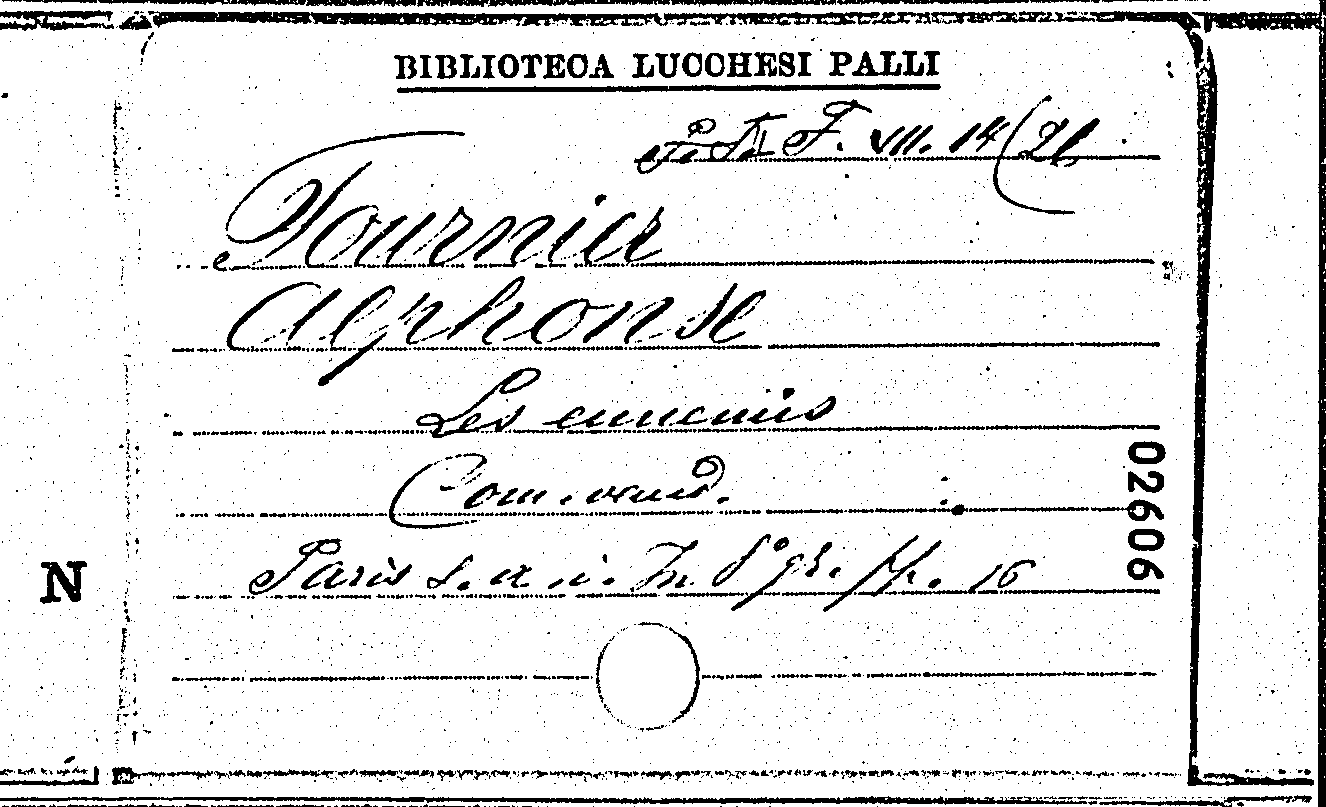 BIBLIOTECA LUCCHESI PALLI
F. VII. 14 (26
Fournier
Alphonse
Les ennemis
Com. vaud.
Paris s. a. n. In 8° gr. pp. 16
02606
N